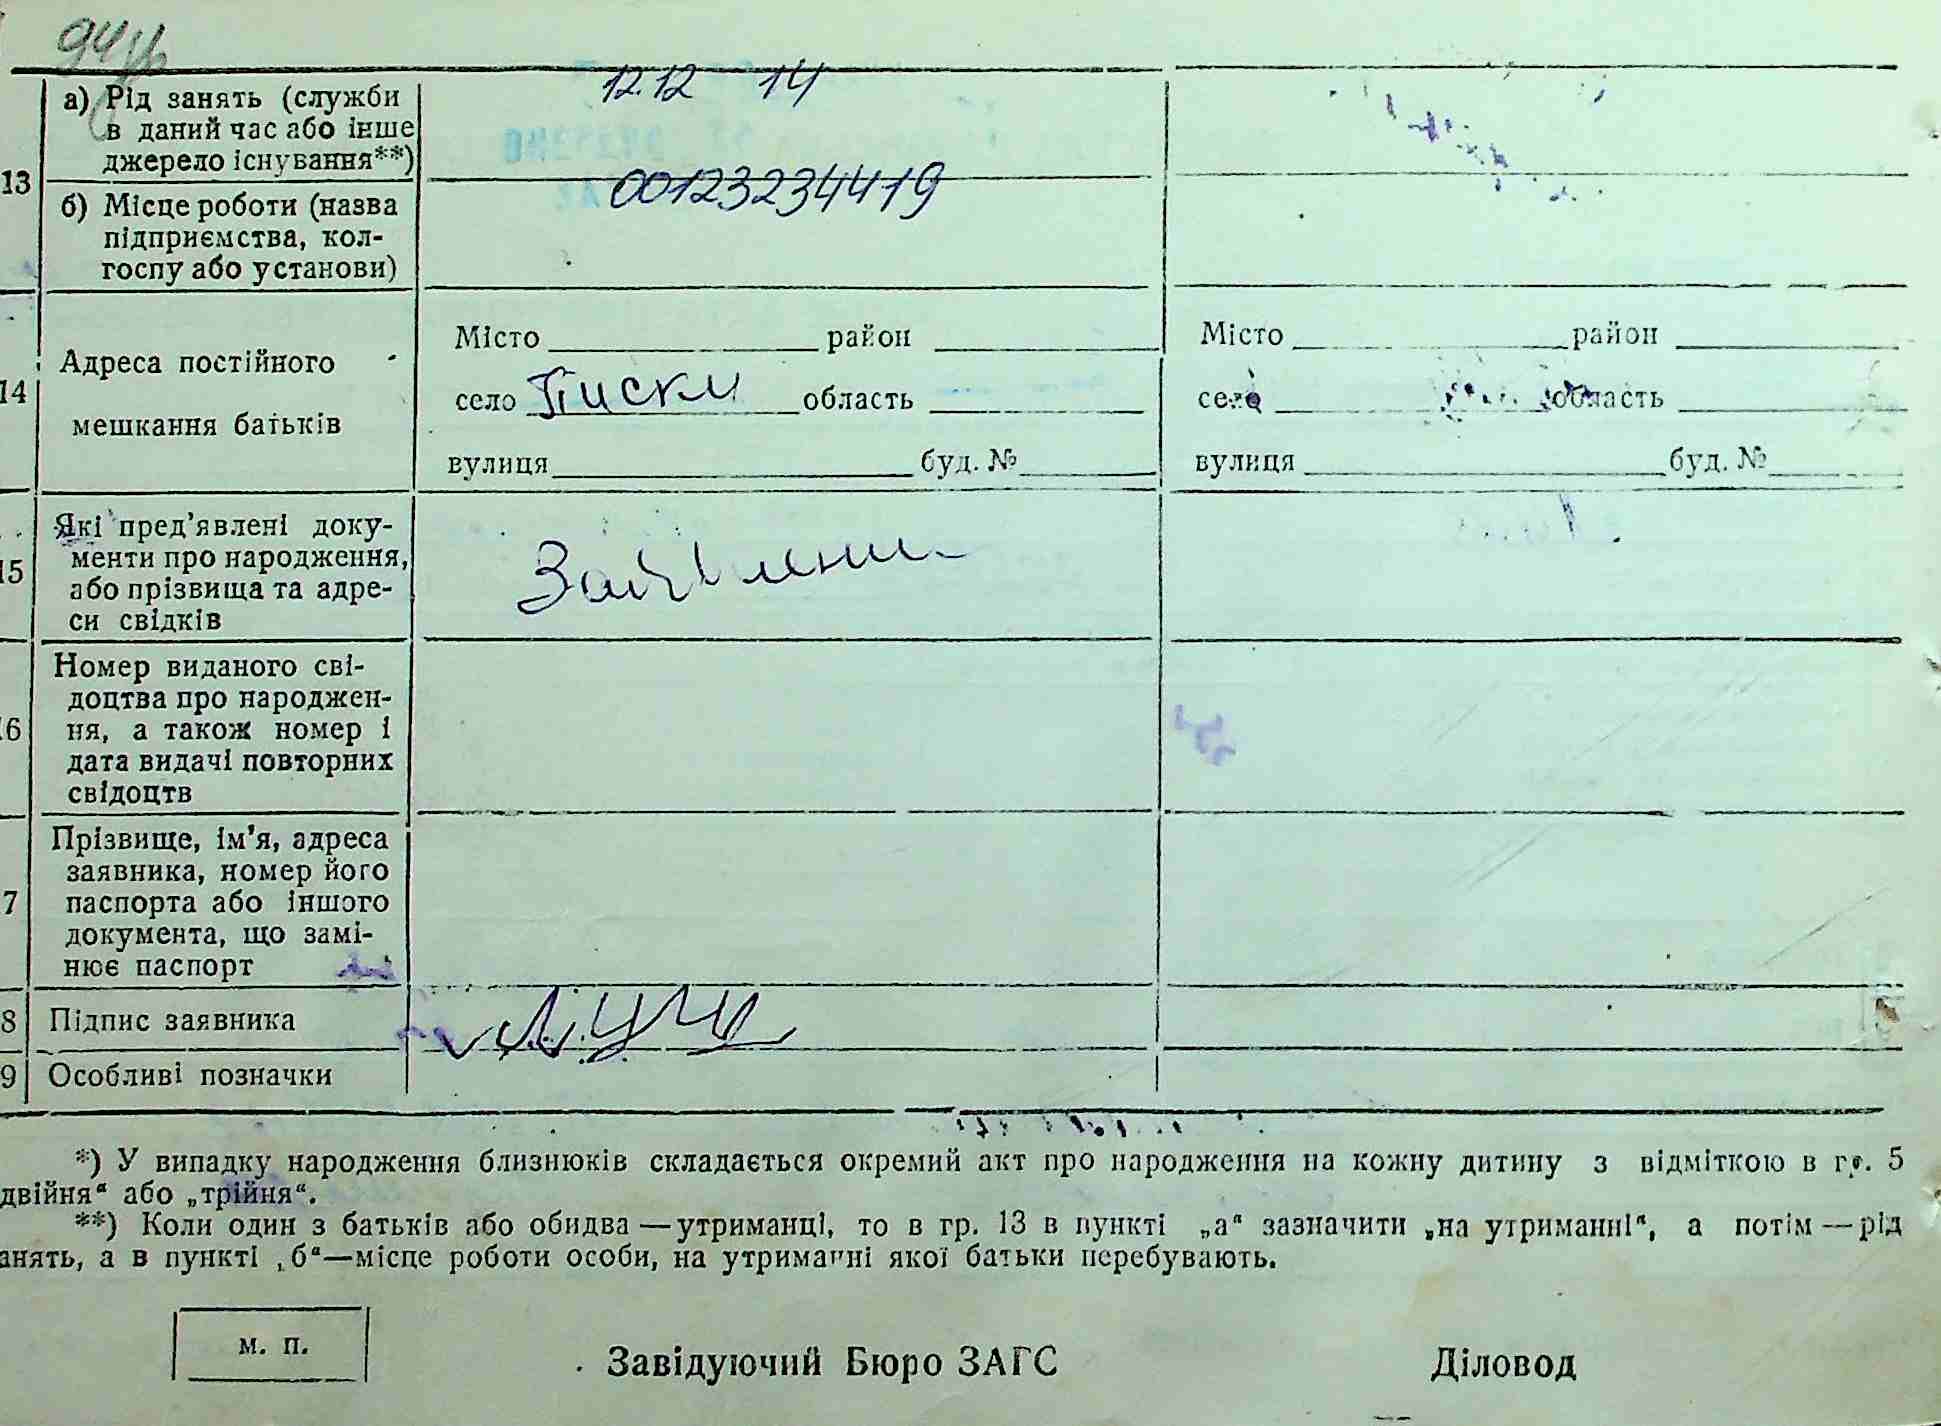 12.12 14
13
а) Рід занять (служби
в даний час або інше
джерело існування**)
б) Місце роботи (назва
підприємства, кол-
госпу або установи)
00123234419
14
Адреса постійного
мешкання батьків
Місто район
село Піски область
вулиця буд. №
Місто район
село область
вулиця буд. №
15
Які пред’явлені доку-
менти про народження,
або прізвища та адре-
си свідків
6
Номер виданого сві-
доцтва про народжен-
ня, а також номер і
дата видачі повторних
свідоцтв
7
Прізвище, ім’я, адреса
заявника, номер його
паспорта або іншого
документа, що замі-
нює паспорт
8 Підпис заявника
9 Особливі позначки
*) У випадку народження близнюків складається окремий акт про народження на кожну дитину з відміткою в гр. 5
двійня“ або „трійня“.
**) Коли один з батьків або обидва — утриманці, то в гр. 13 в пункті „а“ зазначити „на утриманні“, а потім — рід
анять, а в пункті „б“—місце роботи особи, на утриманні якої батьки перебувають.
м. п.
Завідуючий Бюро ЗАГС Діловод